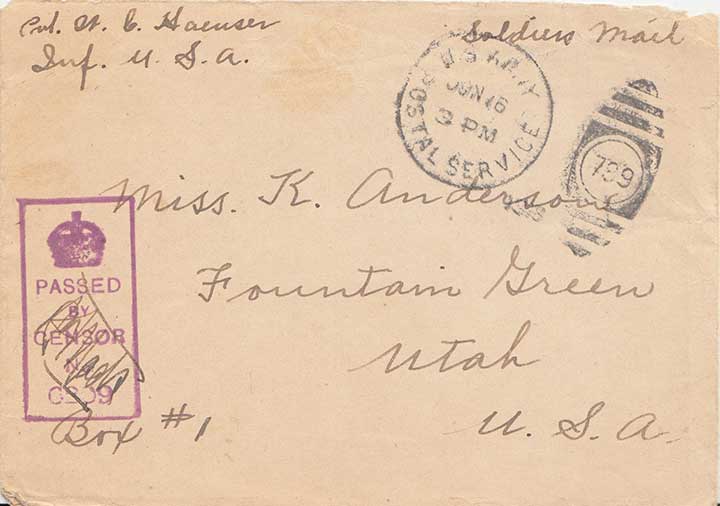 Pvt. W. C. Haenser
Inf. U. S. A.
Soldiers Mail
U S ARMY
POSTAL SERVICE
JUN 16
3 PM
789
Miss. K. Anderson
Fountain Green
Utah
U. S. A.
Box #1
PASSED
BY
CENSOR
No